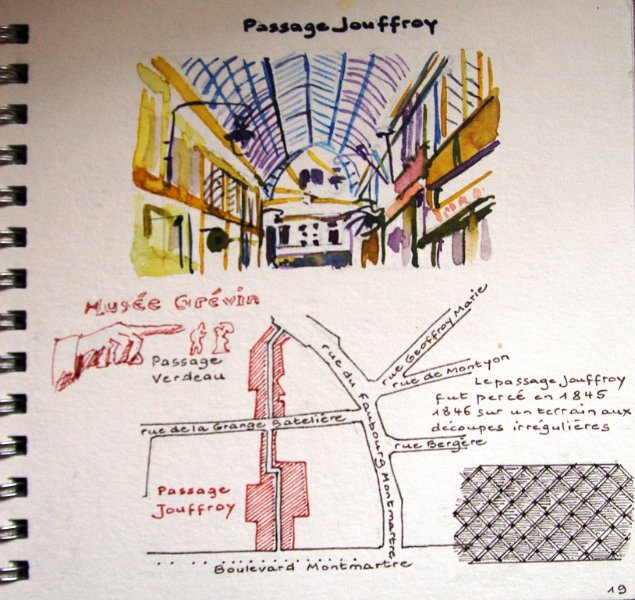 Passage Jouffroy
Musée Grévin
Passage
Verdeau
rue du Faubourg Montmartre
rue Geoffroy Marie
rue de Montyon
Le passage Jouffroy
fut percé en 1845
1846 sur un terrain aux
découpes irrégulières
rue de la Grange Batelière
rue Bergère
Passage
Jouffroy
Boulevard Montmartre
19